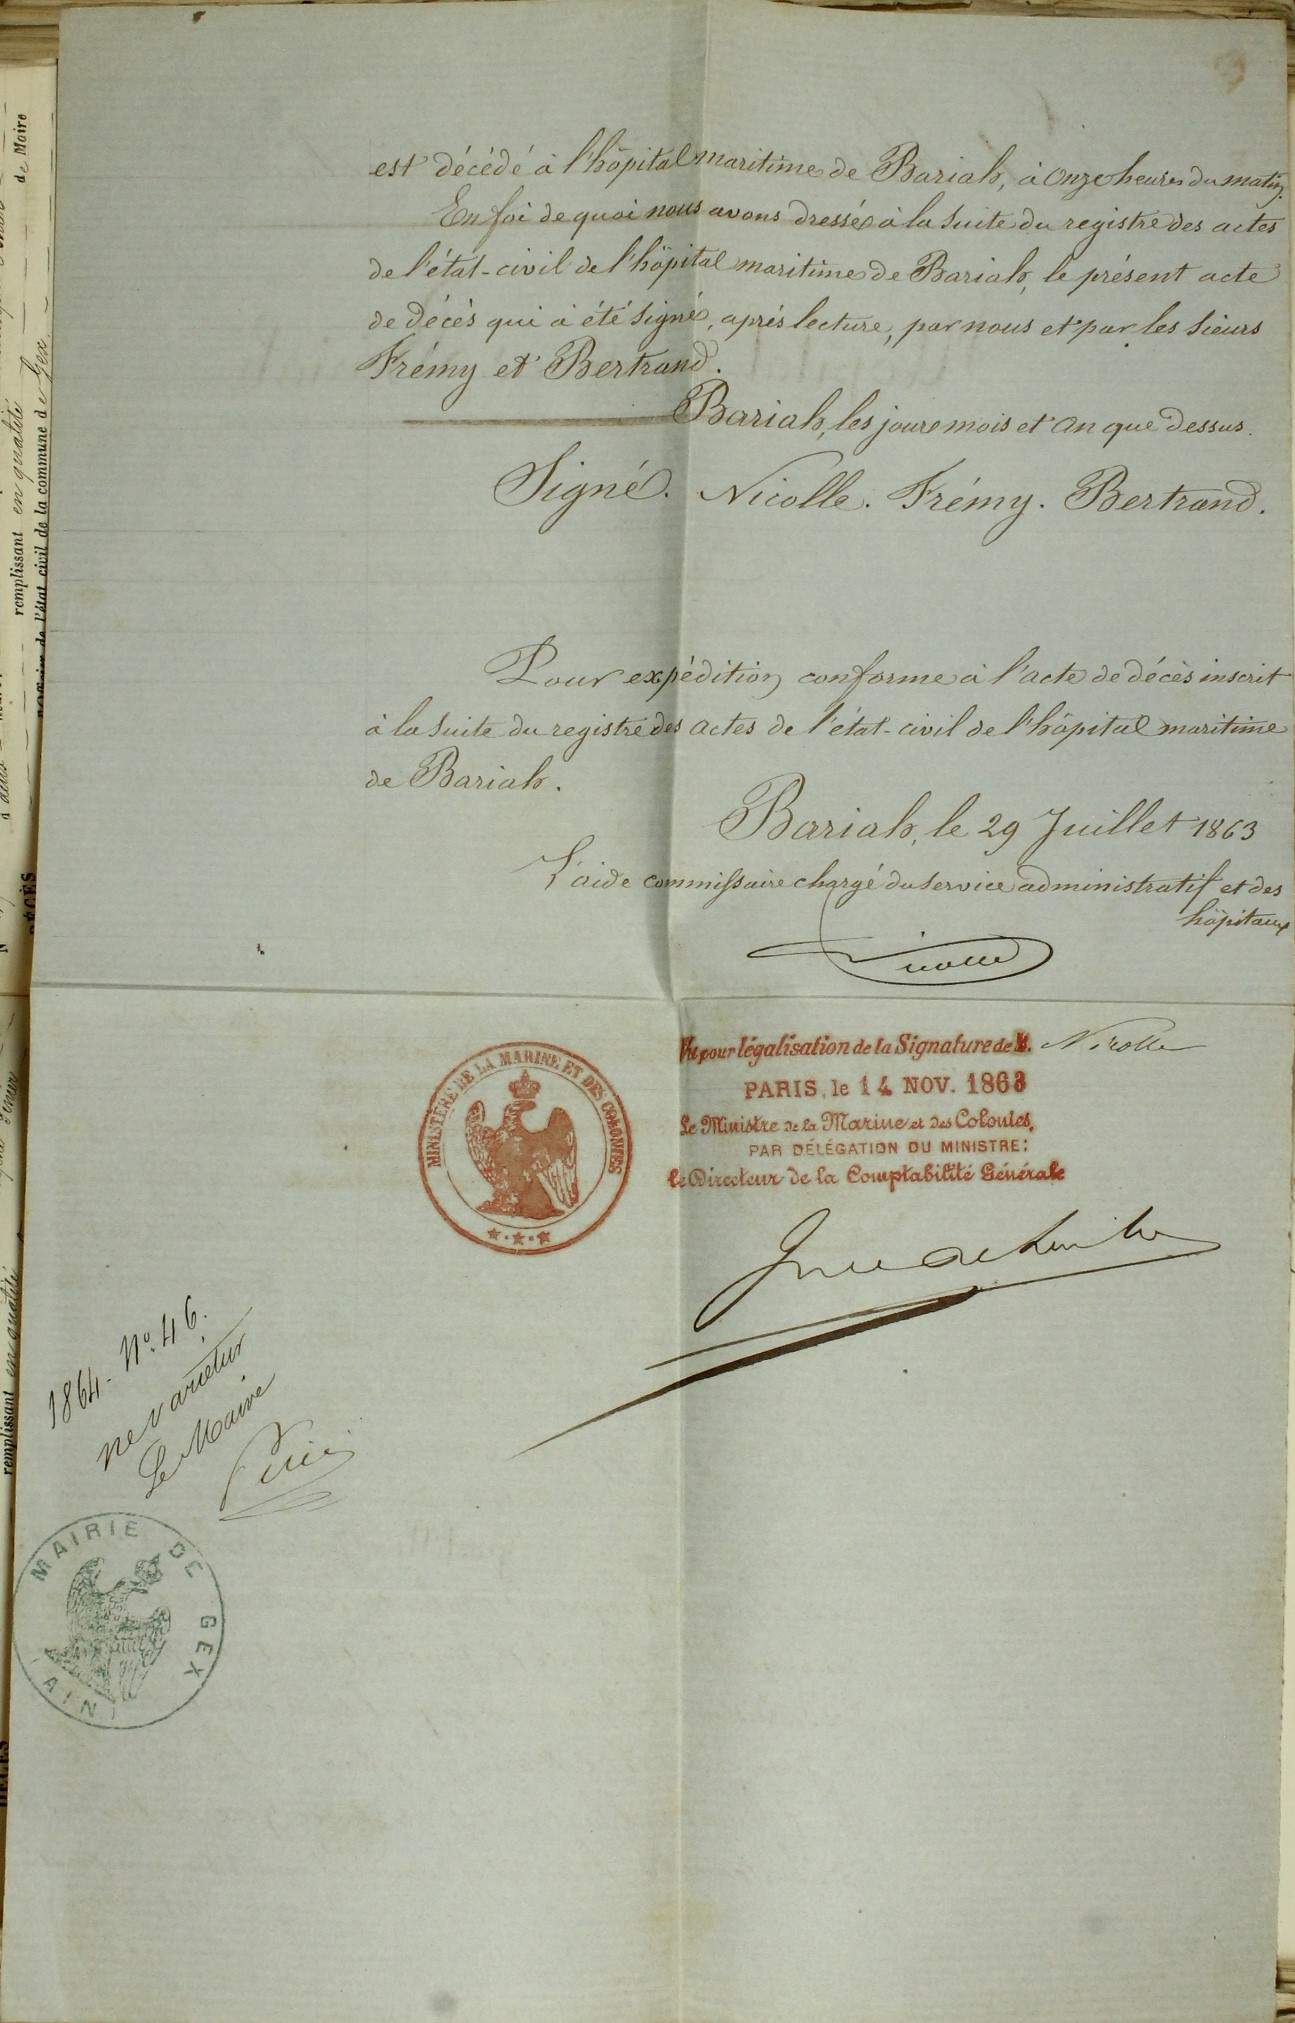 est décédé à l'hôpital maritime de Bariah, à onze heures du matin.
En foi de quoi nous avons dressé à la suite du registre des actes
de l'état-civil de l'hôpital maritime de Bariah, le présent acte
de décès qui à été signé, après lecture, par nous et par les sieurs
Frémy et Bertrand.
Bariah, les jour mois et an que dessus.
Signé. Nicolle. Frémy. Bertrand.
Pour expédition conforme à l'acte de décès inscrit
à la suite du registre des actes de l'état-civil de l'hôpital maritime
de Bariah.
Bariah, le 29 Juillet 1863
L'aide commissaire chargé du service administratif et des
hôpitaux
Nicolle
MINISTÈRE DE LA MARINE ET DES COLONIES
Vu pour légalisation de la Signature de M. Nicolle
PARIS, le 14 NOV. 1863
Le Ministre de la Marine et des Colonies,
PAR DÉLÉGATION DU MINISTRE:
le Directeur de la Comptabilité Générale
1864 - No. 46.
ne varietur
Le Maire
MAIRIE DE GEX
(AIN)
de Maire
remplissant en qualité
de l'état civil de la commune de Gex
DÉCÈS
remplissant en qualité